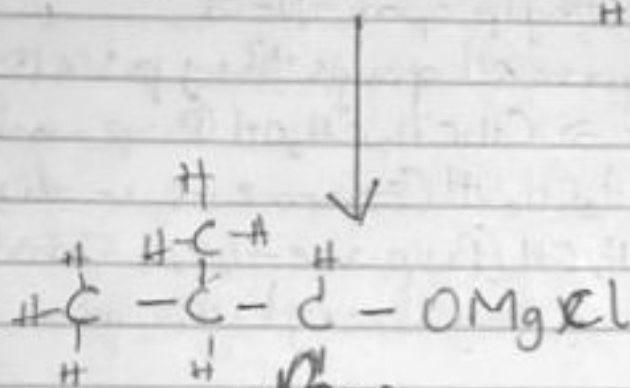 H
H
H H-C-H H
H-C-C-C-OMgCl
H H